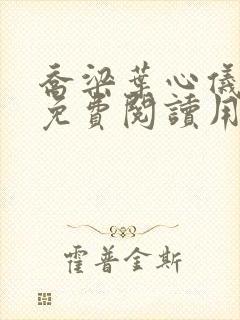 喬梁葉心儀
免費閱讀用
霍普金斯